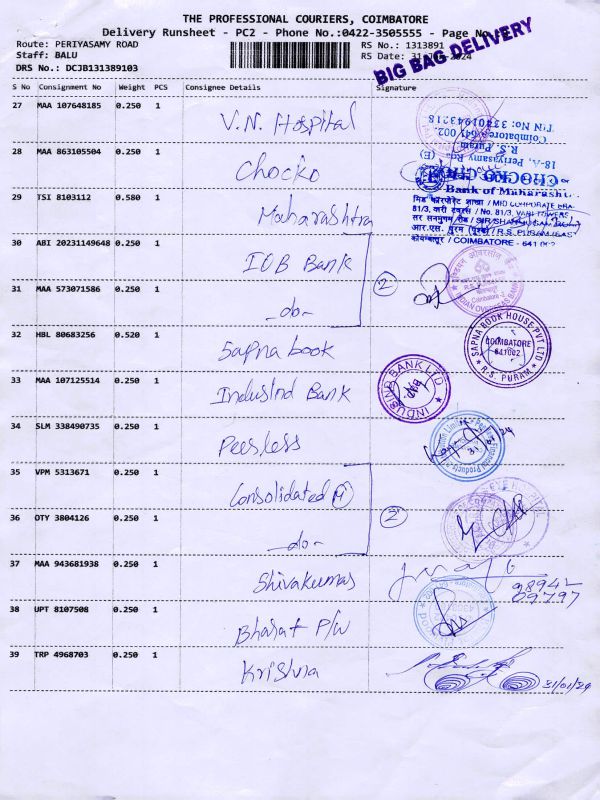 THE PROFESSIONAL COURIERS, COIMBATORE
Delivery Runsheet - PC2 - Phone No.:0422-3505555 - Page No
Route: PERIYASAMY ROAD
RS No.: 1313891
Staff: BALU
RS Date: 31-
2024
DRS No.: DCJB131389103
BIG BAG DELIVERY
S No Consignment No Weight PCS Consignee Details Signature
27 MAA 107648185 0.250 1 V.N. Hospital
TIN No: 33401943218
Coimbatore 641 002.
R.S. Puram
18-A, Periyasamy Rd. (E)
28 MAA 863105504 0.250 1 Chocko
CHOCKO
Bank of Maharasht
29 TSI 8103112 0.580 1 Maharashtra
मिड कॉरपोरेट शाखा / MID CORPORATE BRA
81/3, / No. 81/3,
आर.एस. पुरम / R.S. PURAM
कोयम्बतूर / COIMBATORE - 641 002
30 ABI 20231149648 0.250 1 IOB Bank
Coimbatore-2
2
31 MAA 573071586 0.250 1 -do-
32 HBL 80683256 0.520 1 Sapna book
SAPNA BOOK HOUSE PVT LTD
COIMBATORE
641002
R.S. PURAM
33 MAA 107125514 0.250 1 IndusInd Bank
INDUSIND BANK LTD
34 SLM 338490735 0.250 1 Peerless
35 VPM 5313671 0.250 1 Consolidated
36 OTY 3804126 0.250 1 -do-
2
37 MAA 943681938 0.250 1 Shivakumar
98942
09797
38 UPT 8107508 0.250 1 Bharat P/W
39 TRP 4968703 0.250 1 Krishna
31/01/24